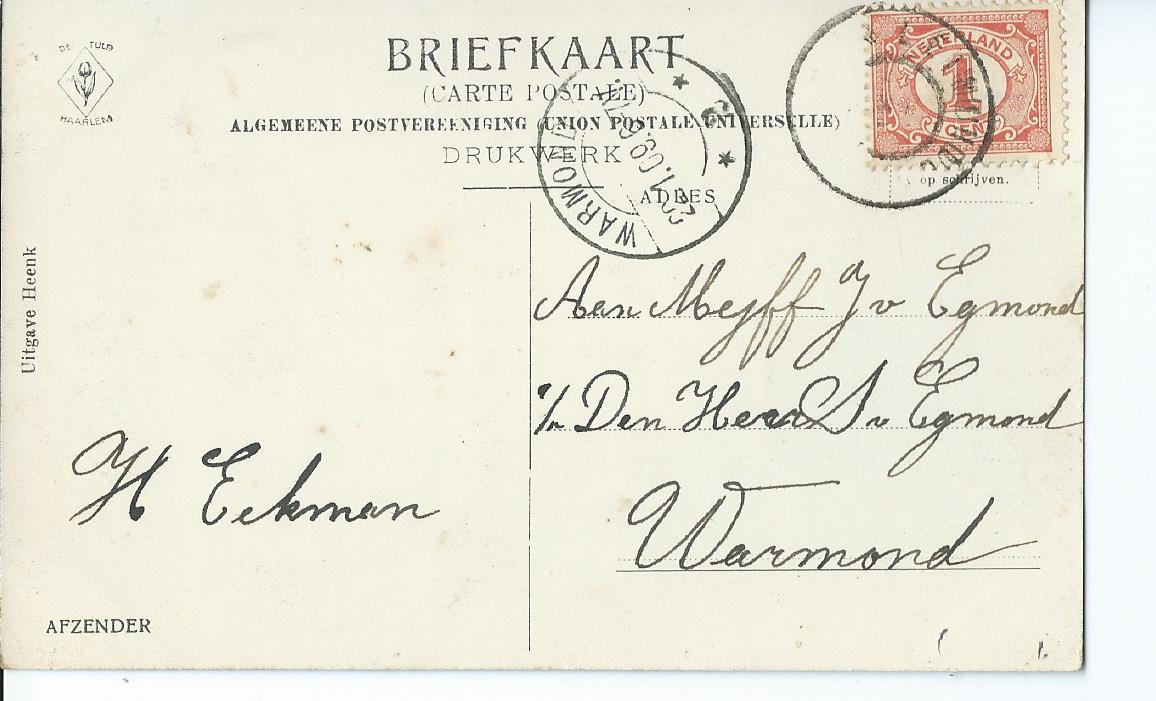 DE TULP
HAARLEM
BRIEFKAART
(CARTE POSTALE)
ALGEMEENE POSTVEREENIGING (UNION POSTALE UNIVERSELLE)
DRUKWERK
ADRES
WARMOND
NEDERLAND
1
CENT
op schrijven.
Uitgave Heenk
Aan Mejff J v Egmond
Den Heer S v Egmond
Warmond
H Eekman
AFZENDER